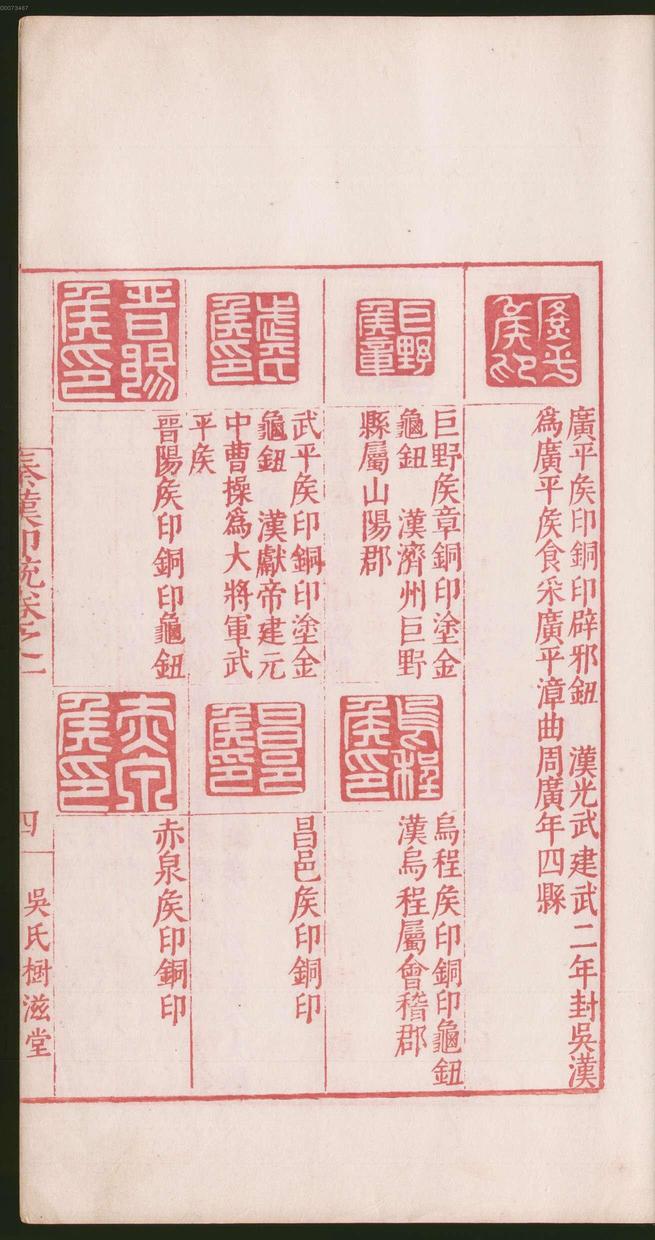 00073467
廣平侯印
廣平矦印銅印辟邪鈕　漢光武建武二年封吳漢
為廣平矦食采廣平漳曲周廣年四縣
巨野矦章
巨野矦章銅印塗金
龜鈕　漢濟州巨野
縣屬山陽郡
烏程矦印
烏程矦印銅印龜鈕
漢烏程屬會稽郡
武平矦印
武平矦印銅印塗金
龜鈕　漢獻帝建元
中曹操為大將軍武
平矦
昌邑矦印
昌邑矦印銅印
晉陽矦印
晉陽矦印銅印龜鈕
赤泉矦印
赤泉矦印銅印
秦漢印統卷之二
四
吳氏樹滋堂